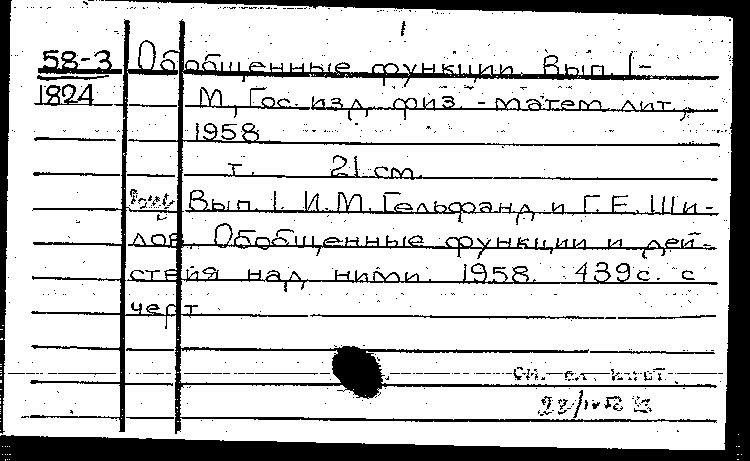 1
58-3 Обобщенные функции. Вып. 1-
1824 М., Гос. изд. физ.-матем. лит.,
1958
т. 21 см.
Вып. 1. И.М. Гельфанд и Г.Е. Ши-
лов. Обобщенные функции и дей-
ствия над ними. 1958. 439 с. с
черт
См. сл. карт.